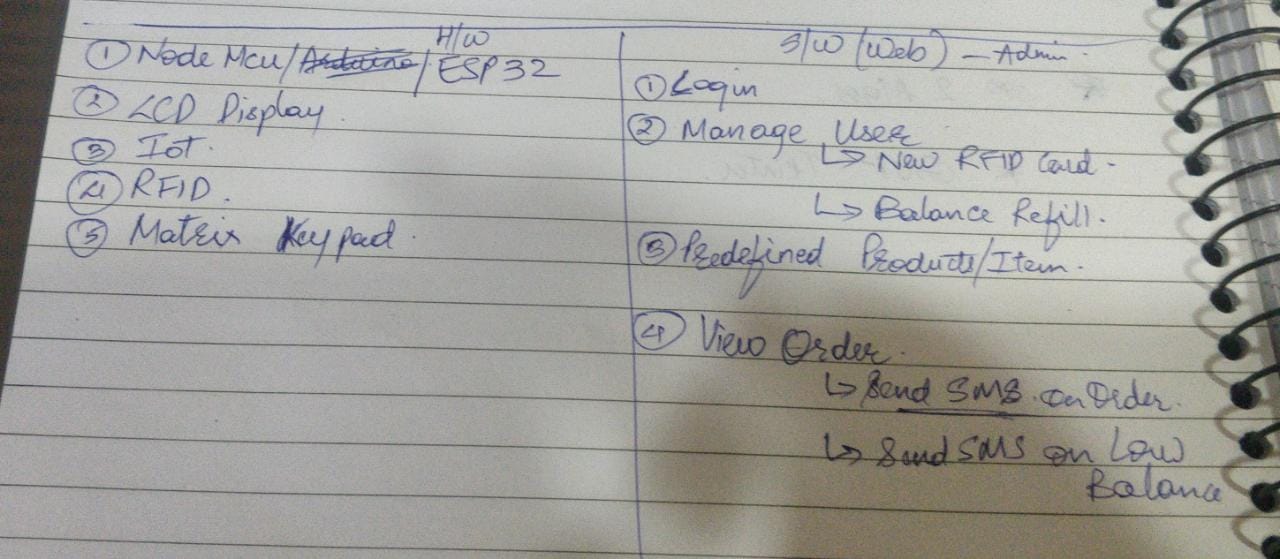 H/W
① Node Mcu/Arduino/ESP32
② LCD Display.
③ Iot.
④ RFID.
⑤ Matrix Keypad.
S/W (Web) - Admin.
① Login
② Manage User
↳ New RFID Card.
↳ Balance Refill.
③ Predefined Products/Item.
④ View Order.
↳ Send SMS on Order.
↳ Send SMS on Low
Balance